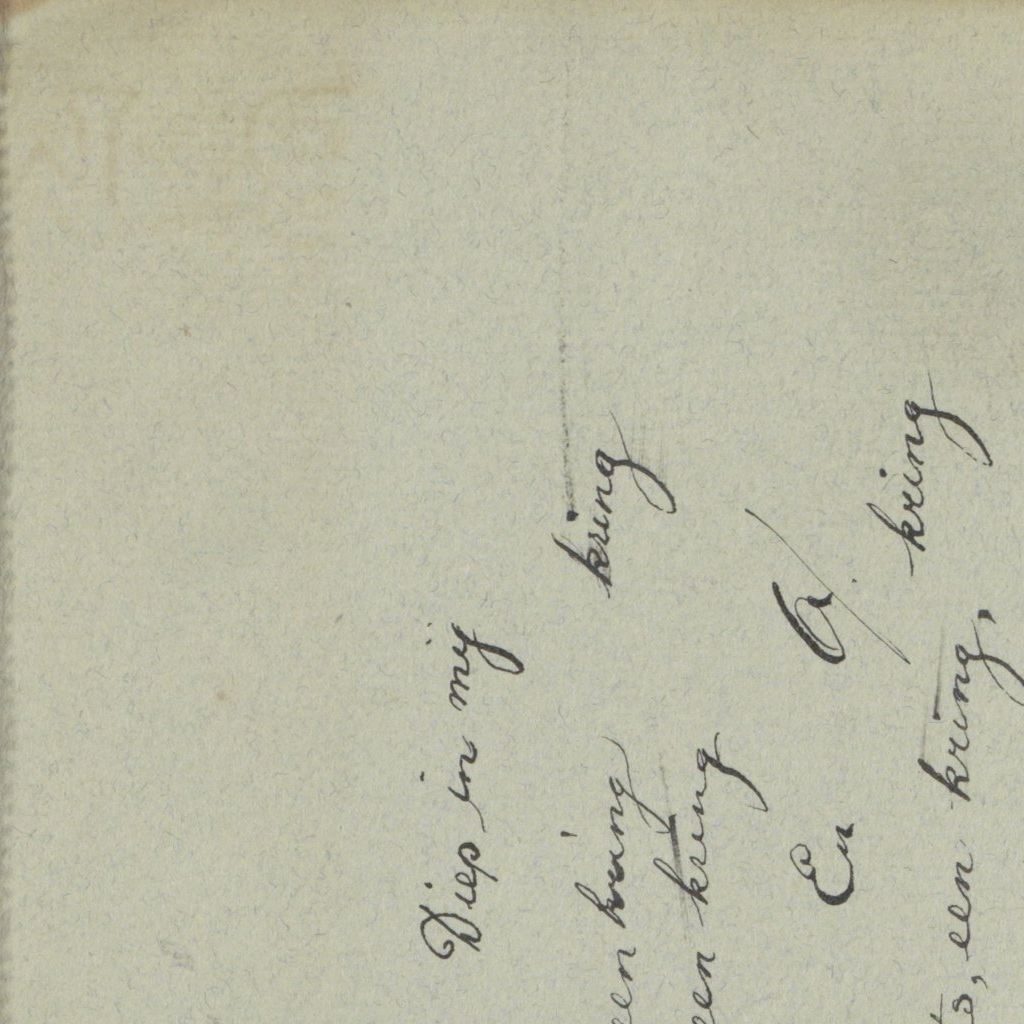 Diep in mij
een kring kring
een kring
En
kring
een kring,